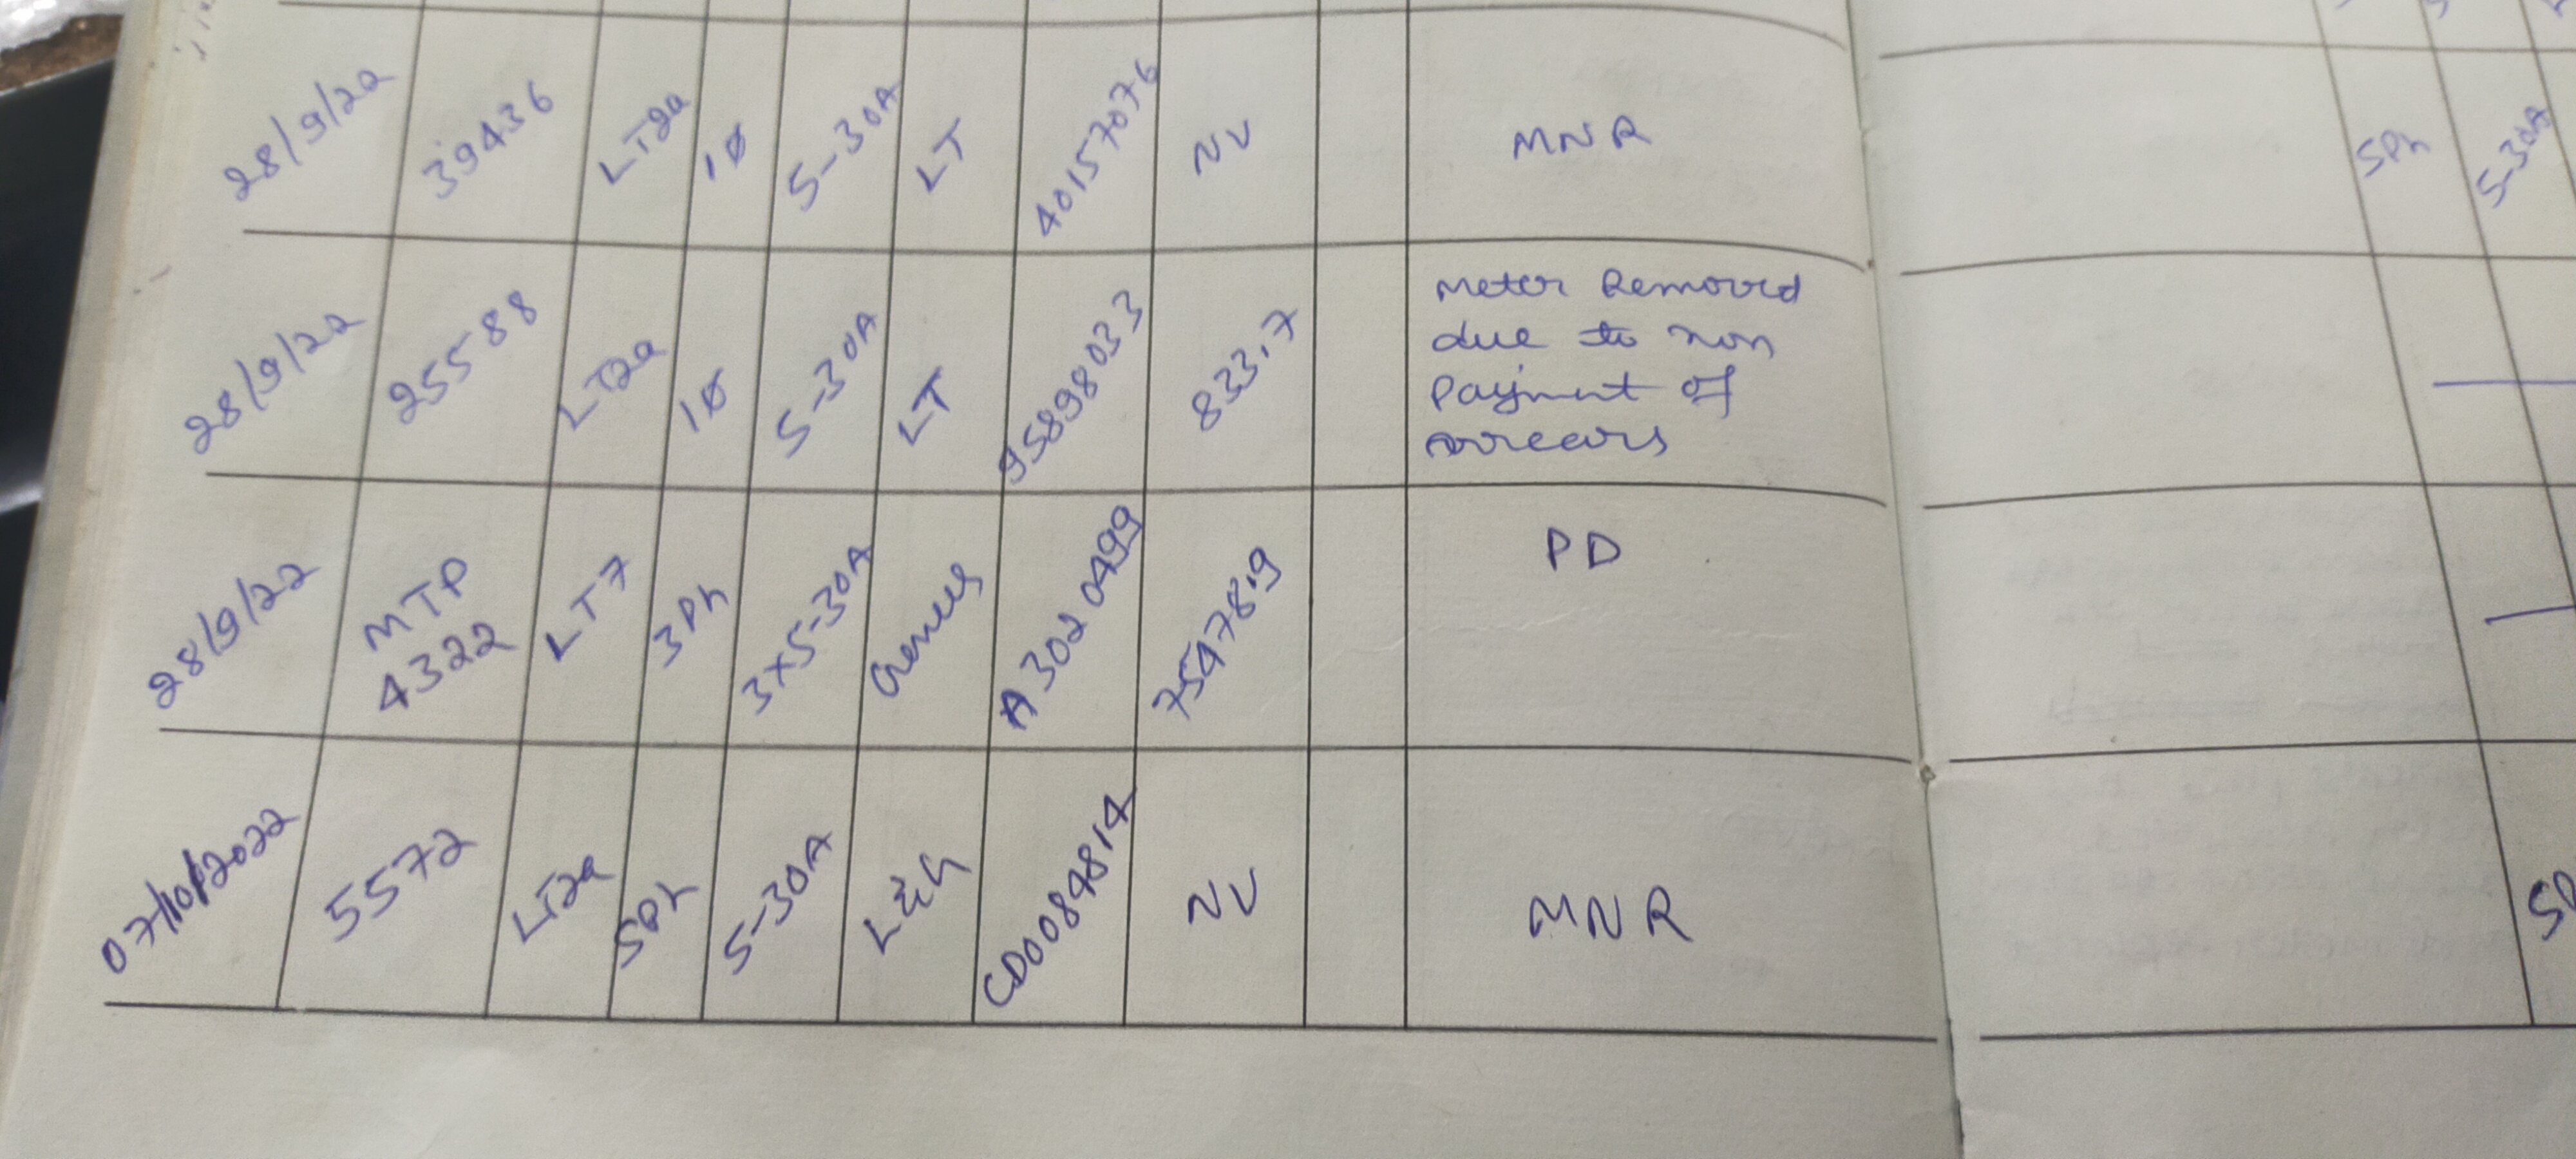 28/9/22 39436 LT2a 1ø 5-30A LT 40157076 NV MNR
SPh 5-30A
28/9/22 25588 LT2a 1ø 5-30A LT 95898033 833.7 Meter Removed
due to non
Payment of
arrears
28/9/22 MTP 4322 LT7 3Ph 3x5-30A Genus A3020499 75478.9 PD
07/10/2022 5572 LT2a SPh 5-30A L&G CD0084814 NV MNR